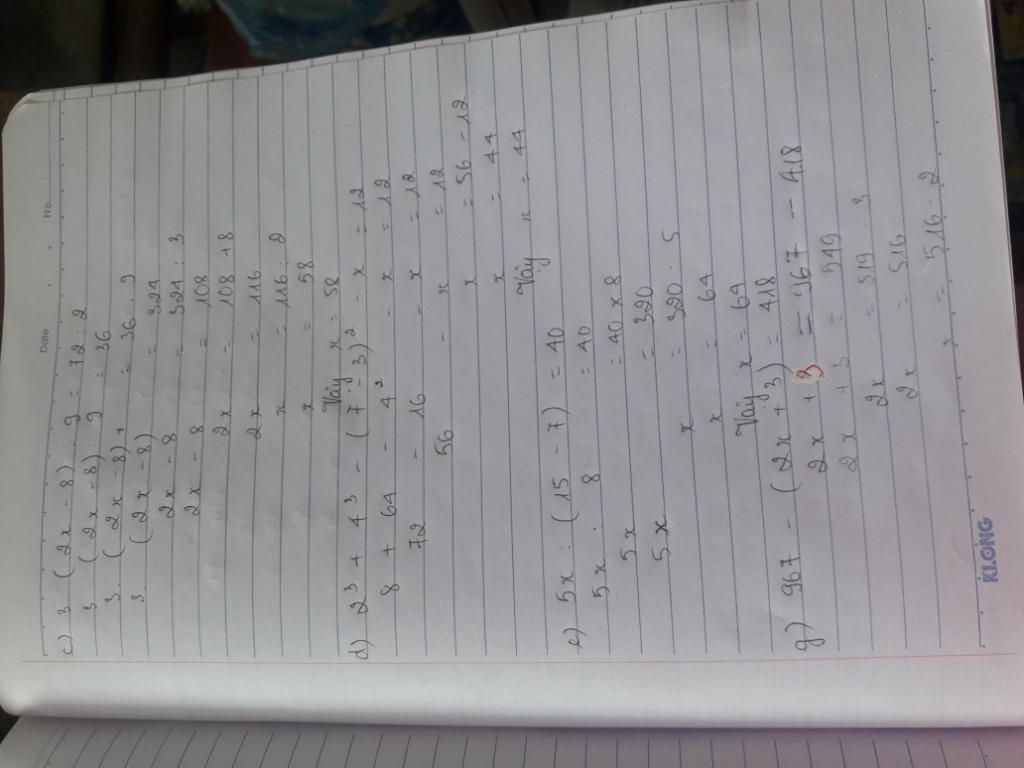 Date No
c) 3. (2x - 8) : 9 = 72 : 2
3. (2x - 8) : 9 = 36
3. (2x - 8) = 36 . 9
3. (2x - 8) = 324
2x - 8 = 324 : 3
2x - 8 = 108
2x = 108 + 8
2x = 116
x = 116 : 2
x = 58
Vậy x = 58
d) 2³ + 4³ - (7 - 3)² - x = 12
8 + 64 - 4² - x = 12
72 - 16 - x = 12
56 - x = 12
x = 56 - 12
x = 44
Vậy x = 44
e) 5x : (15 - 7) = 40
5x : 8 = 40
5x = 40 x 8
5x = 320
x = 320 : 5
x = 64
Vậy x = 64
g) 967 - (2x + 3) = 418
2x + 3 = 967 - 418
2x + 3 = 549
2x = 519 - 3
2x = 516
x = 516 : 2
KLONG